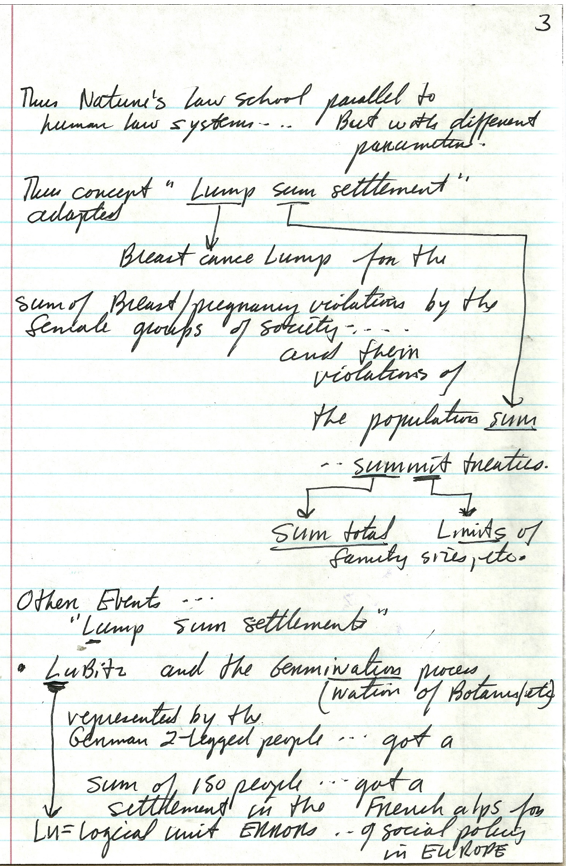 3
Thus Nature's law school parallel to
human law systems.... But with different
parameters.
Thus concept "Lump sum settlement"
adapted
Breast cance Lump for the
sum of Breast/pregnancy violations by the
female groups of society.....
and their
violations of
the population sum
... summit treaties.
Sum total Limits of
family sizes, etc.
Other Events ...
"Lump sum settlements"
• LuBitz and the Germination process
(nation of Botanists)
represented by the
German 2-legged people ... got a
sum of 150 people ... got a
settlement in the French alps for
LU=Logical unit ERRORS .. of social policy
in EUROPE